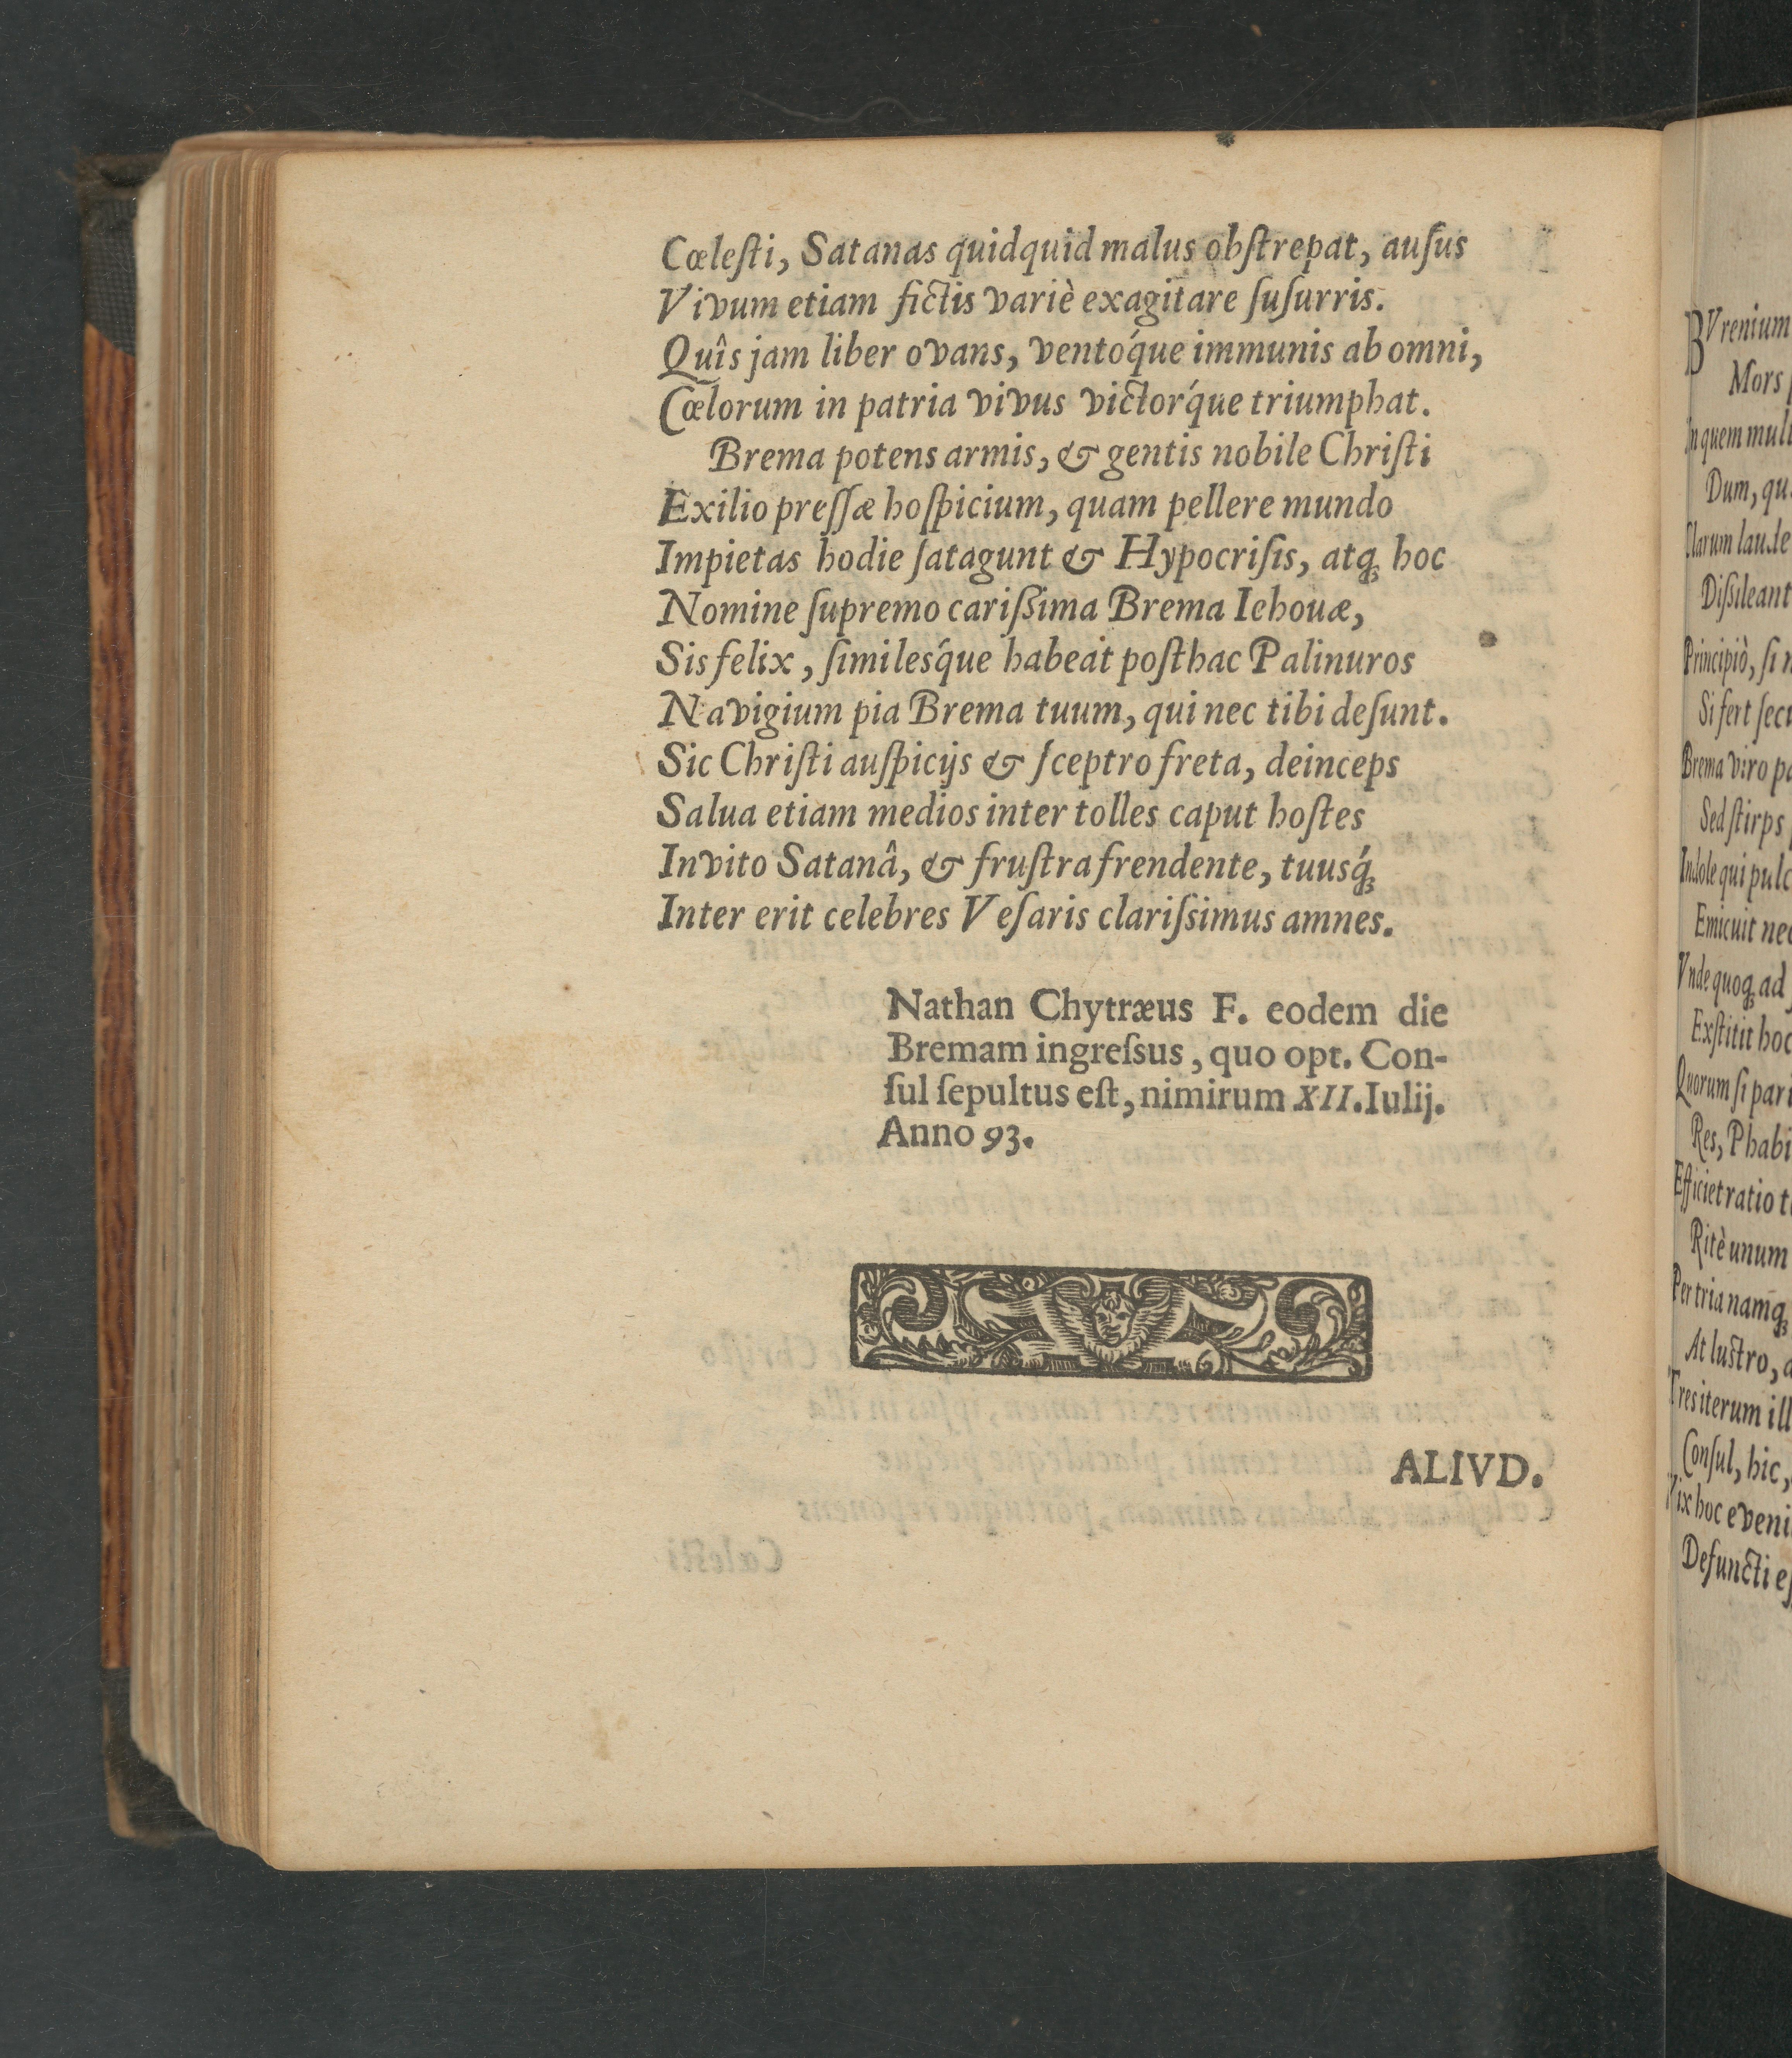 Cœleſti, Satanas quidquid malus obſtrepat, auſus
Vivum etiam fictis variè exagitare ſuſurris.
Quîs jam liber ovans, ventóque immunis ab omni,
Cœlorum in patria vivus victorq́ue triumphat.
Brema potens armis, & gentis nobile Chriſti
Exilio preſſæ hoſpicium, quam pellere mundo
Impietas hodie ſatagunt & Hypocriſis, atq; hoc
Nomine ſupremo cariſſima Brema Iehouæ,
Sis felix, ſimilesq́ue habeat poſthac Palinuros
Navigium pia Brema tuum, qui nec tibi deſunt.
Sic Chriſti auſpicijs & ſceptro freta, deinceps
Salua etiam medios inter tolles caput hoſtes
Invito Satanâ, & fruſtra frendente, tuusq́;
Inter erit celebres Veſaris clariſsimus amnes.
Nathan Chytræus F. eodem die
Bremam ingreſsus, quo opt. Con-
ſul ſepultus eſt, nimirum XII. Iulij.
Anno 93.
ALIVD.
BVrenium
Mors
In quem mult
Dum, qu
Clarum laude
Diſsileant
Principiò, ſi
Si fert ſec
Brema viro p
Sed ſtirps
Indole qui pulc
Emicuit ne
Vnde quoq; ad
Exſtitit hoc
Quorum ſi pari
Res, Phabi
Efficiet ratio t
Ritè unum
Per tria namq;
At luſtro, a
Tres iterum ill
Conſul, hic,
Vix hoc eveni
Defuncti eſ